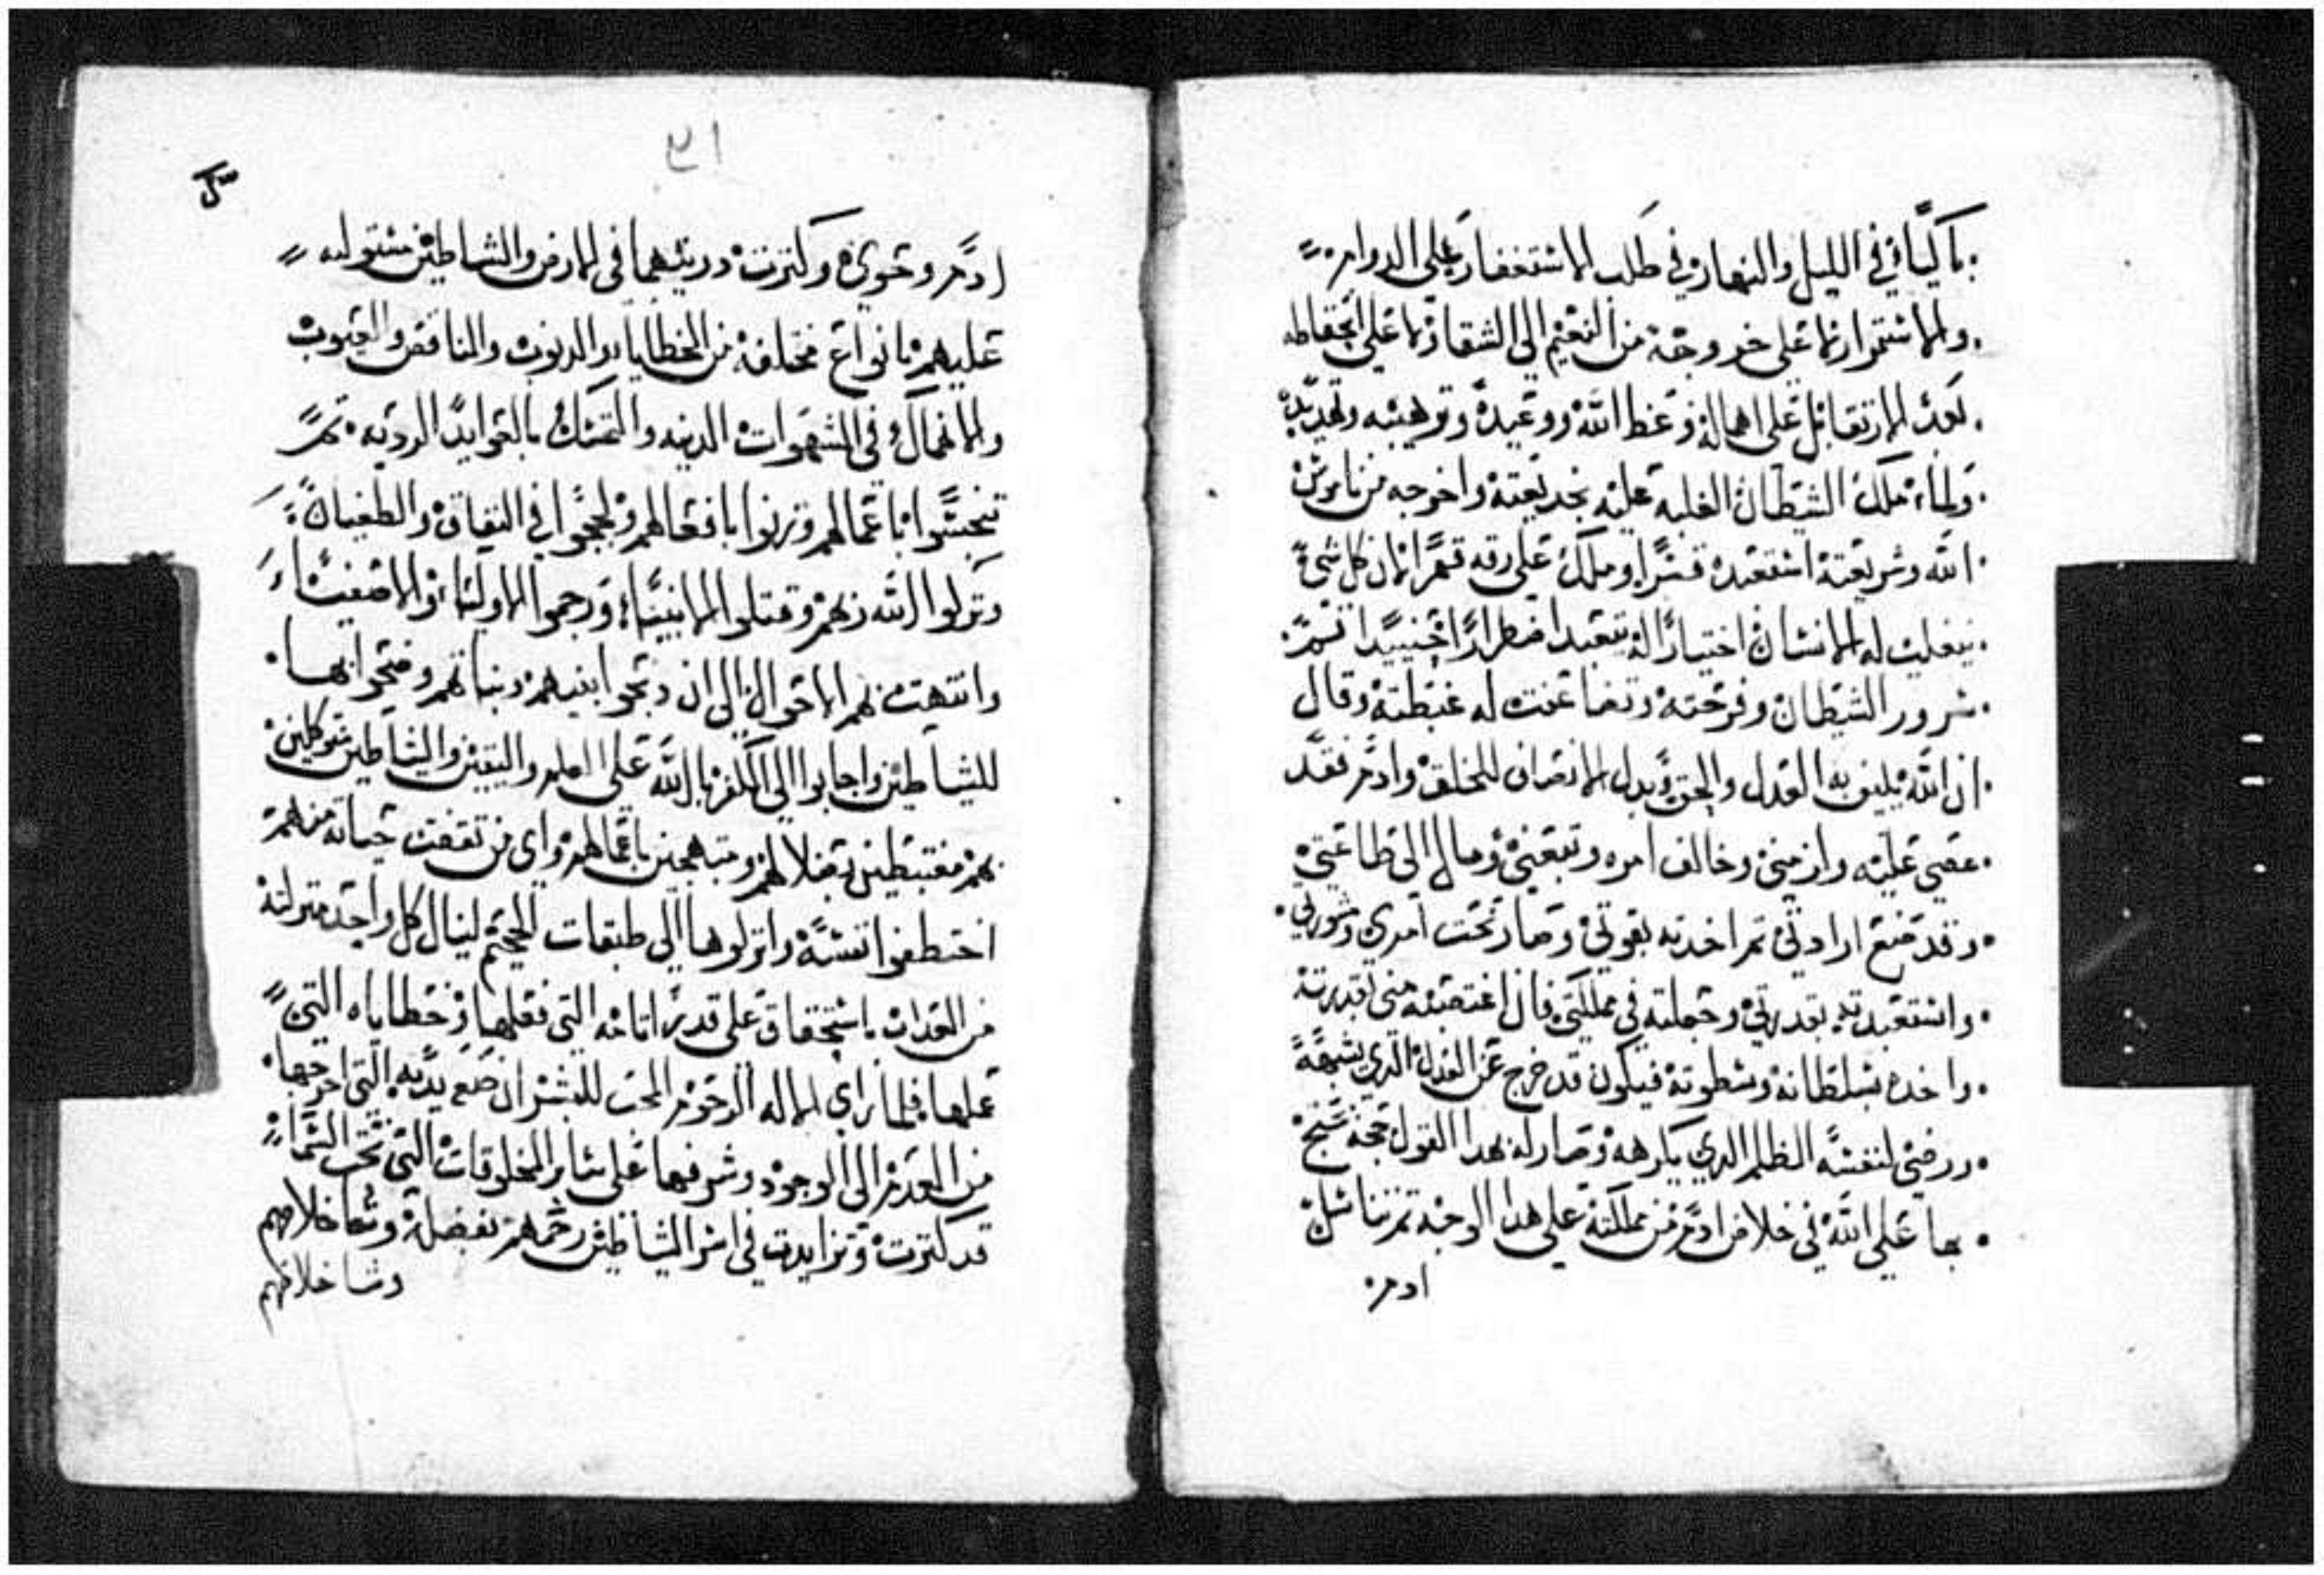 باكيًا في الليل والنهار في طلب الاستغفار علي الدوام
ولاستمرارنا علي خروجه من النعيم الي الشقا ونا علي انحطاطه
بعد الارتفاع علي اهماله وعظ الله ووعيده وترهيبه وتهديده
ولما ملك الشيطان الغلبه عليه بخديعته واخرجه من ناموس
الله وشريعته استعبده قسرًا وملك علي رقه قهرًا لان كل شي
ينغلب له الانسان اختيارًا له يتعبد اضطرارًا
سرور الشيطان وفرحته وتضاعفت له غبطته وقال
ان الله يليق به العدل والحق وبدل الانصاف للخلق وادم فقد
عصي عليه وارضيني وخالف امره وتبعني ومال الي طاعتي
وقد صنع ارادتي ثم اخدته بقوتي وصار تحت امري
واستعبدته بقدرتي وجعلته في مملكتي فان اغتصبه مني بقدرته
واخده بسلطانه وسطوته فيكون قد خرج عن العدل الدي
ورضي لنفسه الظلم الدي يكرهه وصار له بهدا القول حجه
بها علي الله في خلاص ادم من مملكته علي هدا الوجه ثم تناسل
ادم
٢١
ادم وحوي وكترت دريتهما في الارض والشياطين مستوليه
عليهم بانواع مختلفه من الخطايا والدنوب والنقايص والعيوب
والانهماك في الشهوات الدنيه والتمسك بالعوايد الرديه ثم
تنجسوا باعمالهم وزنوا بافعالهم ولججوا في النفاق والطغيان
وتركوا الله ربهم وقتلوا الانبيا ورجموا الاوليا والاصفيا
وانتهت بهم الاحوال الي ان دبحوا بنيهم وبناتهم وضحوا بها
للشياطين واجابوا الي الكفر بالله علي العلم واليقين والشياطين متوكلين
بهم مغتبطين بضلالهم ومبتهجين باعمالهم واي من حياته منهم
اختطفوا نفسه وانزلوها الي طبقات الجحيم لينال كل واحد منزلته
من العداب باستحقاق علي قدر اتامه التي فعلها وخطاياه التي
عملها فلما راي الاله الرحوم المحب للبشر ان صنع يديه التي اخرجها
من العدم الي الوجود وشرفها علي ساير المخلوقات التي تحت السما
قد كترت وتزايدت في اسر الشياطين رحمهم بفضله وشا خلاصهم
وشا خلاصهم